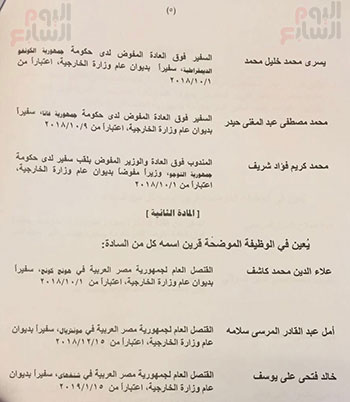 اليوم السابع
(٥)
يسرى محمد خليل محمد
السفير فوق العادة المفوض لدى حكومة جمهورية الكونغو
الديمقراطية، سفيراً بديوان عام وزارة الخارجية، اعتباراً من
٢٠١٨/١٠/١
محمد مصطفى عبد المغنى حيدر
السفير فوق العادة المفوض لدى حكومة جمهورية غانا، سفيراً
بديوان عام وزارة الخارجية، اعتباراً من ٢٠١٨/١٠/٩
محمد كريم فؤاد شريف
المندوب فوق العادة والوزير المفوض بلقب سفير لدى حكومة
جمهورية التوجو، وزيراً مفوضاً بديوان عام وزارة الخارجية،
اعتباراً من ٢٠١٨/١٠/١
[ المادة الثانية ]
يُعين في الوظيفة الموضحة قرين اسمه كل من السادة:
علاء الدين محمد كاشف
القنصل العام لجمهورية مصر العربية في هونج كونج، سفيراً
بديوان عام وزارة الخارجية، اعتباراً من ٢٠١٨/١٠/١
أمل عبد القادر المرسى سلامه
القنصل العام لجمهورية مصر العربية في مونتريال، سفيراً بديوان
عام وزارة الخارجية، اعتباراً من ٢٠١٨/١٢/١٥
خالد فتحى على يوسف
القنصل العام لجمهورية مصر العربية في شنغهاي، سفيراً بديوان
عام وزارة الخارجية، اعتباراً من ٢٠١٩/١/١٥